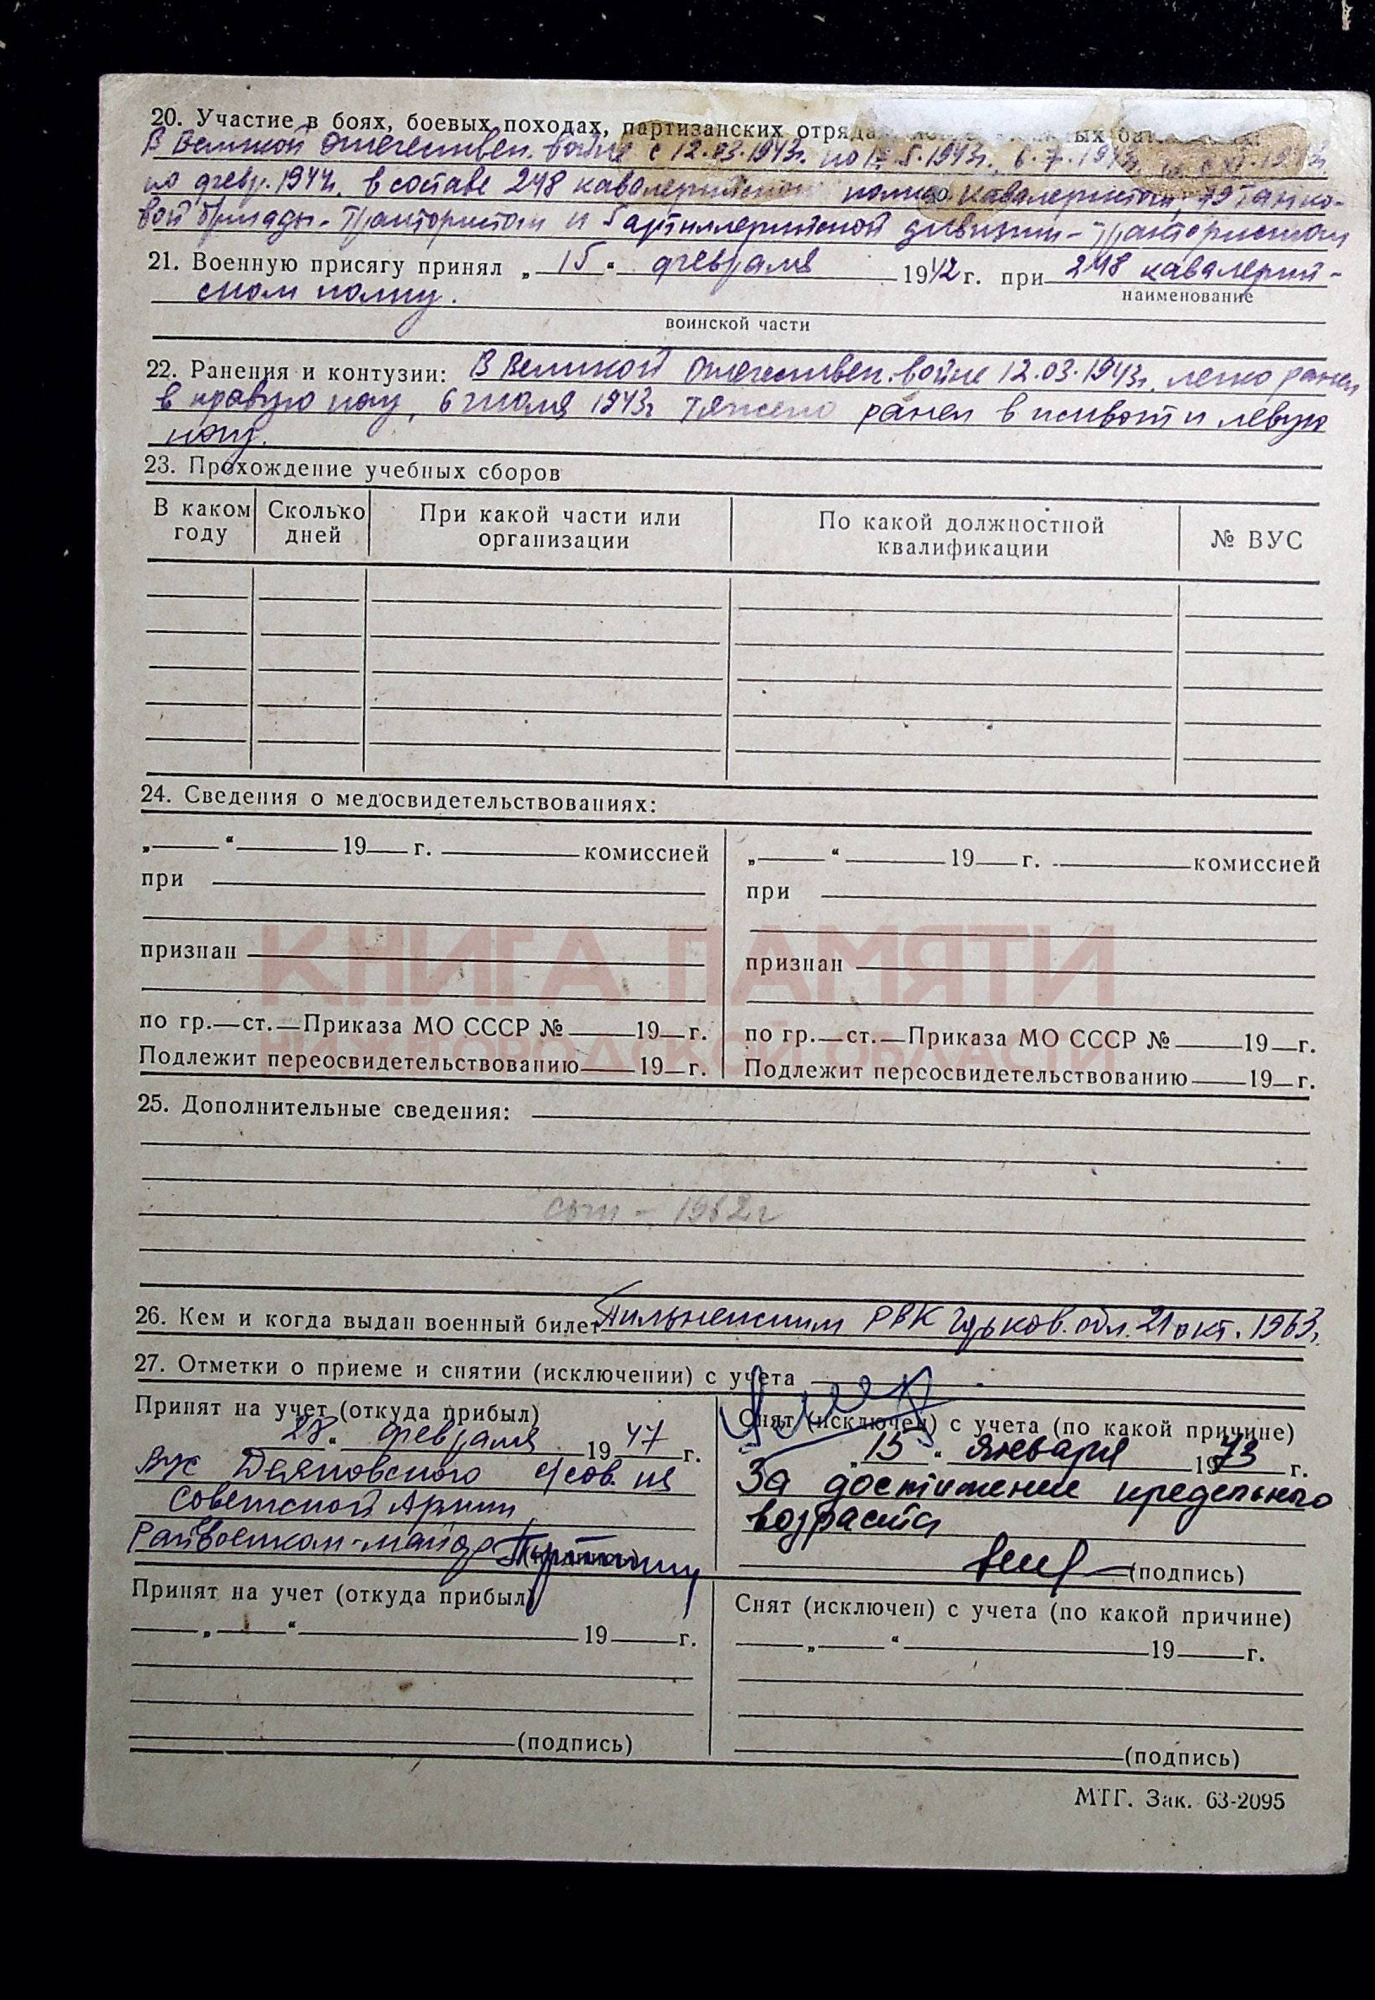 20. Участие в боях, боевых походах, партизанских отряда
В Великой Отечествен. войне с 12.03.1943г. по
по февр. 1944г. в составе 248 кавалерийского полка кавалеристом, 79 танко-
вой бригады - трактористом и артиллерийской дивизии - трактористом
21. Военную присягу принял „15“ февраля 1942 г. при 248 кавалерий-
ском полку.
наименование
воинской части
22. Ранения и контузии: В Великой Отечествен. войне 12.03.1943г. легко ранен
в правую ногу, 6 июля 1943г тяжело ранен в живот и левую
ногу.
23. Прохождение учебных сборов
В каком году Сколько дней При какой части или организации По какой должностной квалификации № ВУС
24. Сведения о медосвидетельствованиях:
„ “ 19 г. комиссией „ “ 19 г. комиссией
при при
признан признан
КНИГА ПАМЯТИ
НИЖЕГОРОДСКОЙ ОБЛАСТИ
по гр. ст. Приказа МО СССР № 19 г. по гр. ст. Приказа МО СССР № 19 г.
Подлежит переосвидетельствованию 19 г. Подлежит переосвидетельствованию 19 г.
25. Дополнительные сведения:
1962г
26. Кем и когда выдан военный билет Пильненским РВК Горьков. обл. 21 окт. 1963г.
27. Отметки о приеме и снятии (исключении) с учета
Принят на учет (откуда прибыл) Снят (исключен) с учета (по какой причине)
28 „ февраля 1947 г. „15“ января 1973 г.
За достижение предельного
Советской Армии
возраста
Райвоенком - майор
(подпись)
Принят на учет (откуда прибыл) Снят (исключен) с учета (по какой причине)
„ “ 19 г. „ “ 19 г.
(подпись) (подпись)
МТГ. Зак. 63-2095